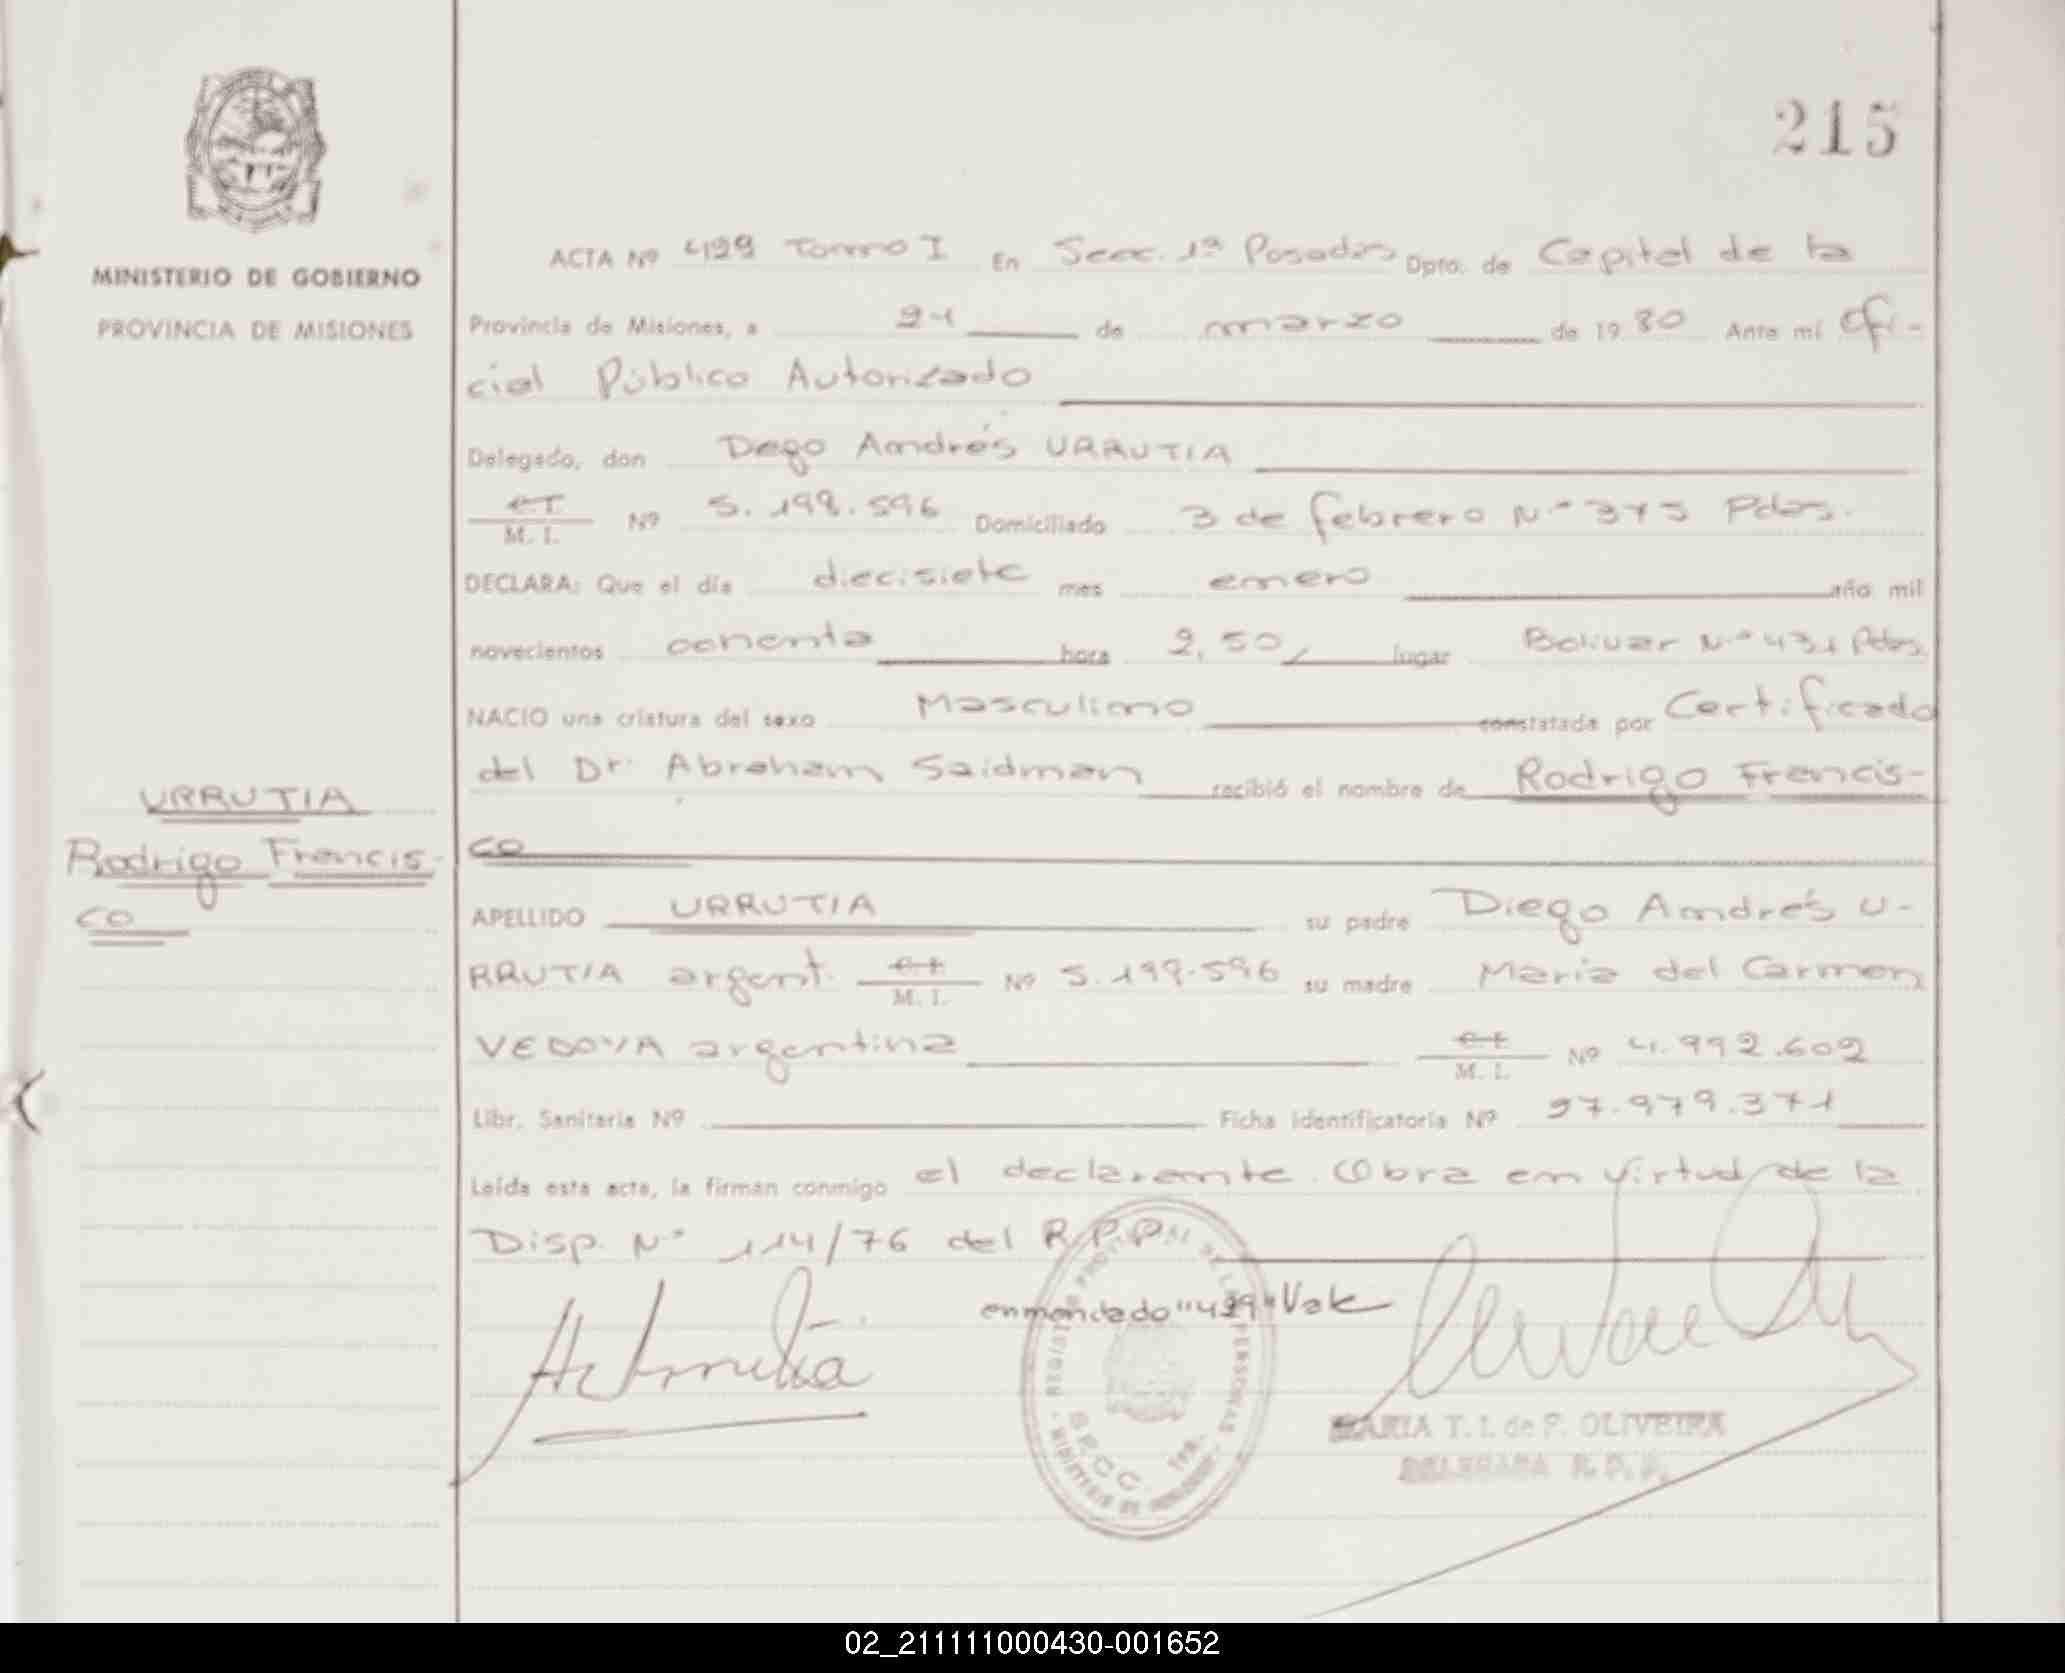 215
MINISTERIO DE GOBIERNO
PROVINCIA DE MISIONES
ACTA Nº 429 Tomo I En Secc. 1ª Posadas Dpto. de Capital de la
Provincia de Misiones, a 21 de marzo de 1980 Ante mí Ofi-
cial Público Autorizado
Delegado, don Diego Andrés URRUTIA
M. I. Nº 5.199.596 Domiciliado 3 de febrero Nº 375 Pdas.
DECLARA: Que el día diecisiete mes enero año mil
novecientos ochenta hora 2,50 lugar Bolivar Nº 431 Pdas.
NACIO una criatura del sexo Masculino constatada por Certificado
del Dr. Abraham Saidman recibió el nombre de Rodrigo Francis-
co
URRUTIA
Rodrigo Francis-
co
APELLIDO URRUTIA su padre Diego Andrés U-
RRUTIA argent. M. I. Nº 5.199.596 su madre Maria del Carmen
VEDOYA argentina M. I. Nº 4.992.602
Libr. Sanitaria Nº Ficha identificatoria Nº 27.979.371
Leída esta acta, la firman conmigo el declarante. Obra en virtud de la
Disp. Nº 114/76 del R.P.P.
enmendado "429" Vale
REGISTRO PROVINCIAL DE LAS PERSONAS
SECC. 1ra.
MINISTERIO DE GOBIERNO
MARIA T. I. de F. OLIVEIRA
DELEGADA R. P. P.
02_211111000430-001652